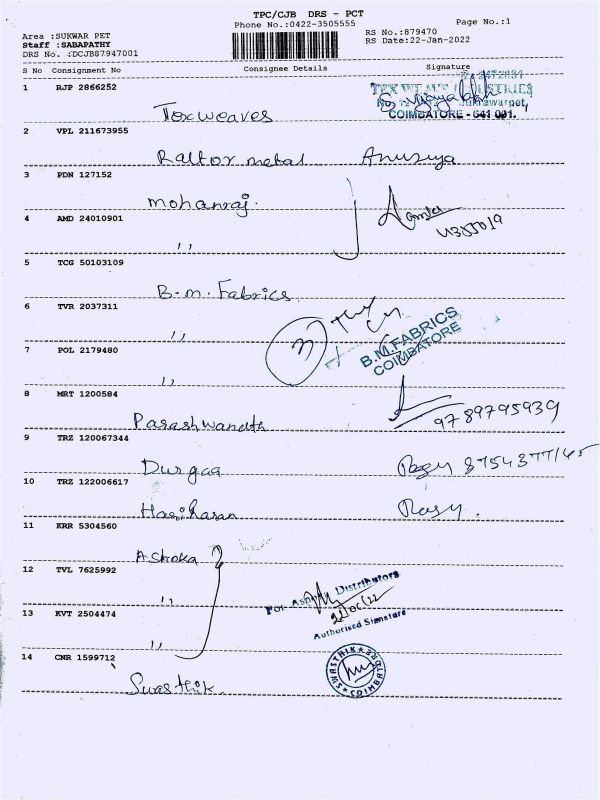 TPC/CJB DRS - PCT
Phone No.:0422-3505555 Page No.:1
Area :SUKWAR PET RS No.:879470
Staff :SABAPATHY RS Date:22-Jan-2022
DRS No. :DCJB87947001
S No Consignment No Consignee Details Signature
1 RJP 2866252
Texweaves
COIMBATORE - 641 001.
2 VPL 211673955
Raltor metal Anusuya
3 PDN 127152
mohanraj.
4 AMD 24010901
,,
5 TCG 50103109
B.m. Fabrics
6 TVR 2037311
,,
B.M.FABRICS
COIMBATORE
7 POL 2179480
,,
8 MRT 1200584
Parashwanath 9789795939
9 TRZ 120067344
Durgaa
10 TRZ 122006617
Hariharan
11 KRR 5304560
Ashoka
12 TVL 7625992
,,
For Distributors
13 KVT 2504474
Authorised Signature
,,
14 CNR 1599712
SWASTHIK COIMBATORE
Swasthik